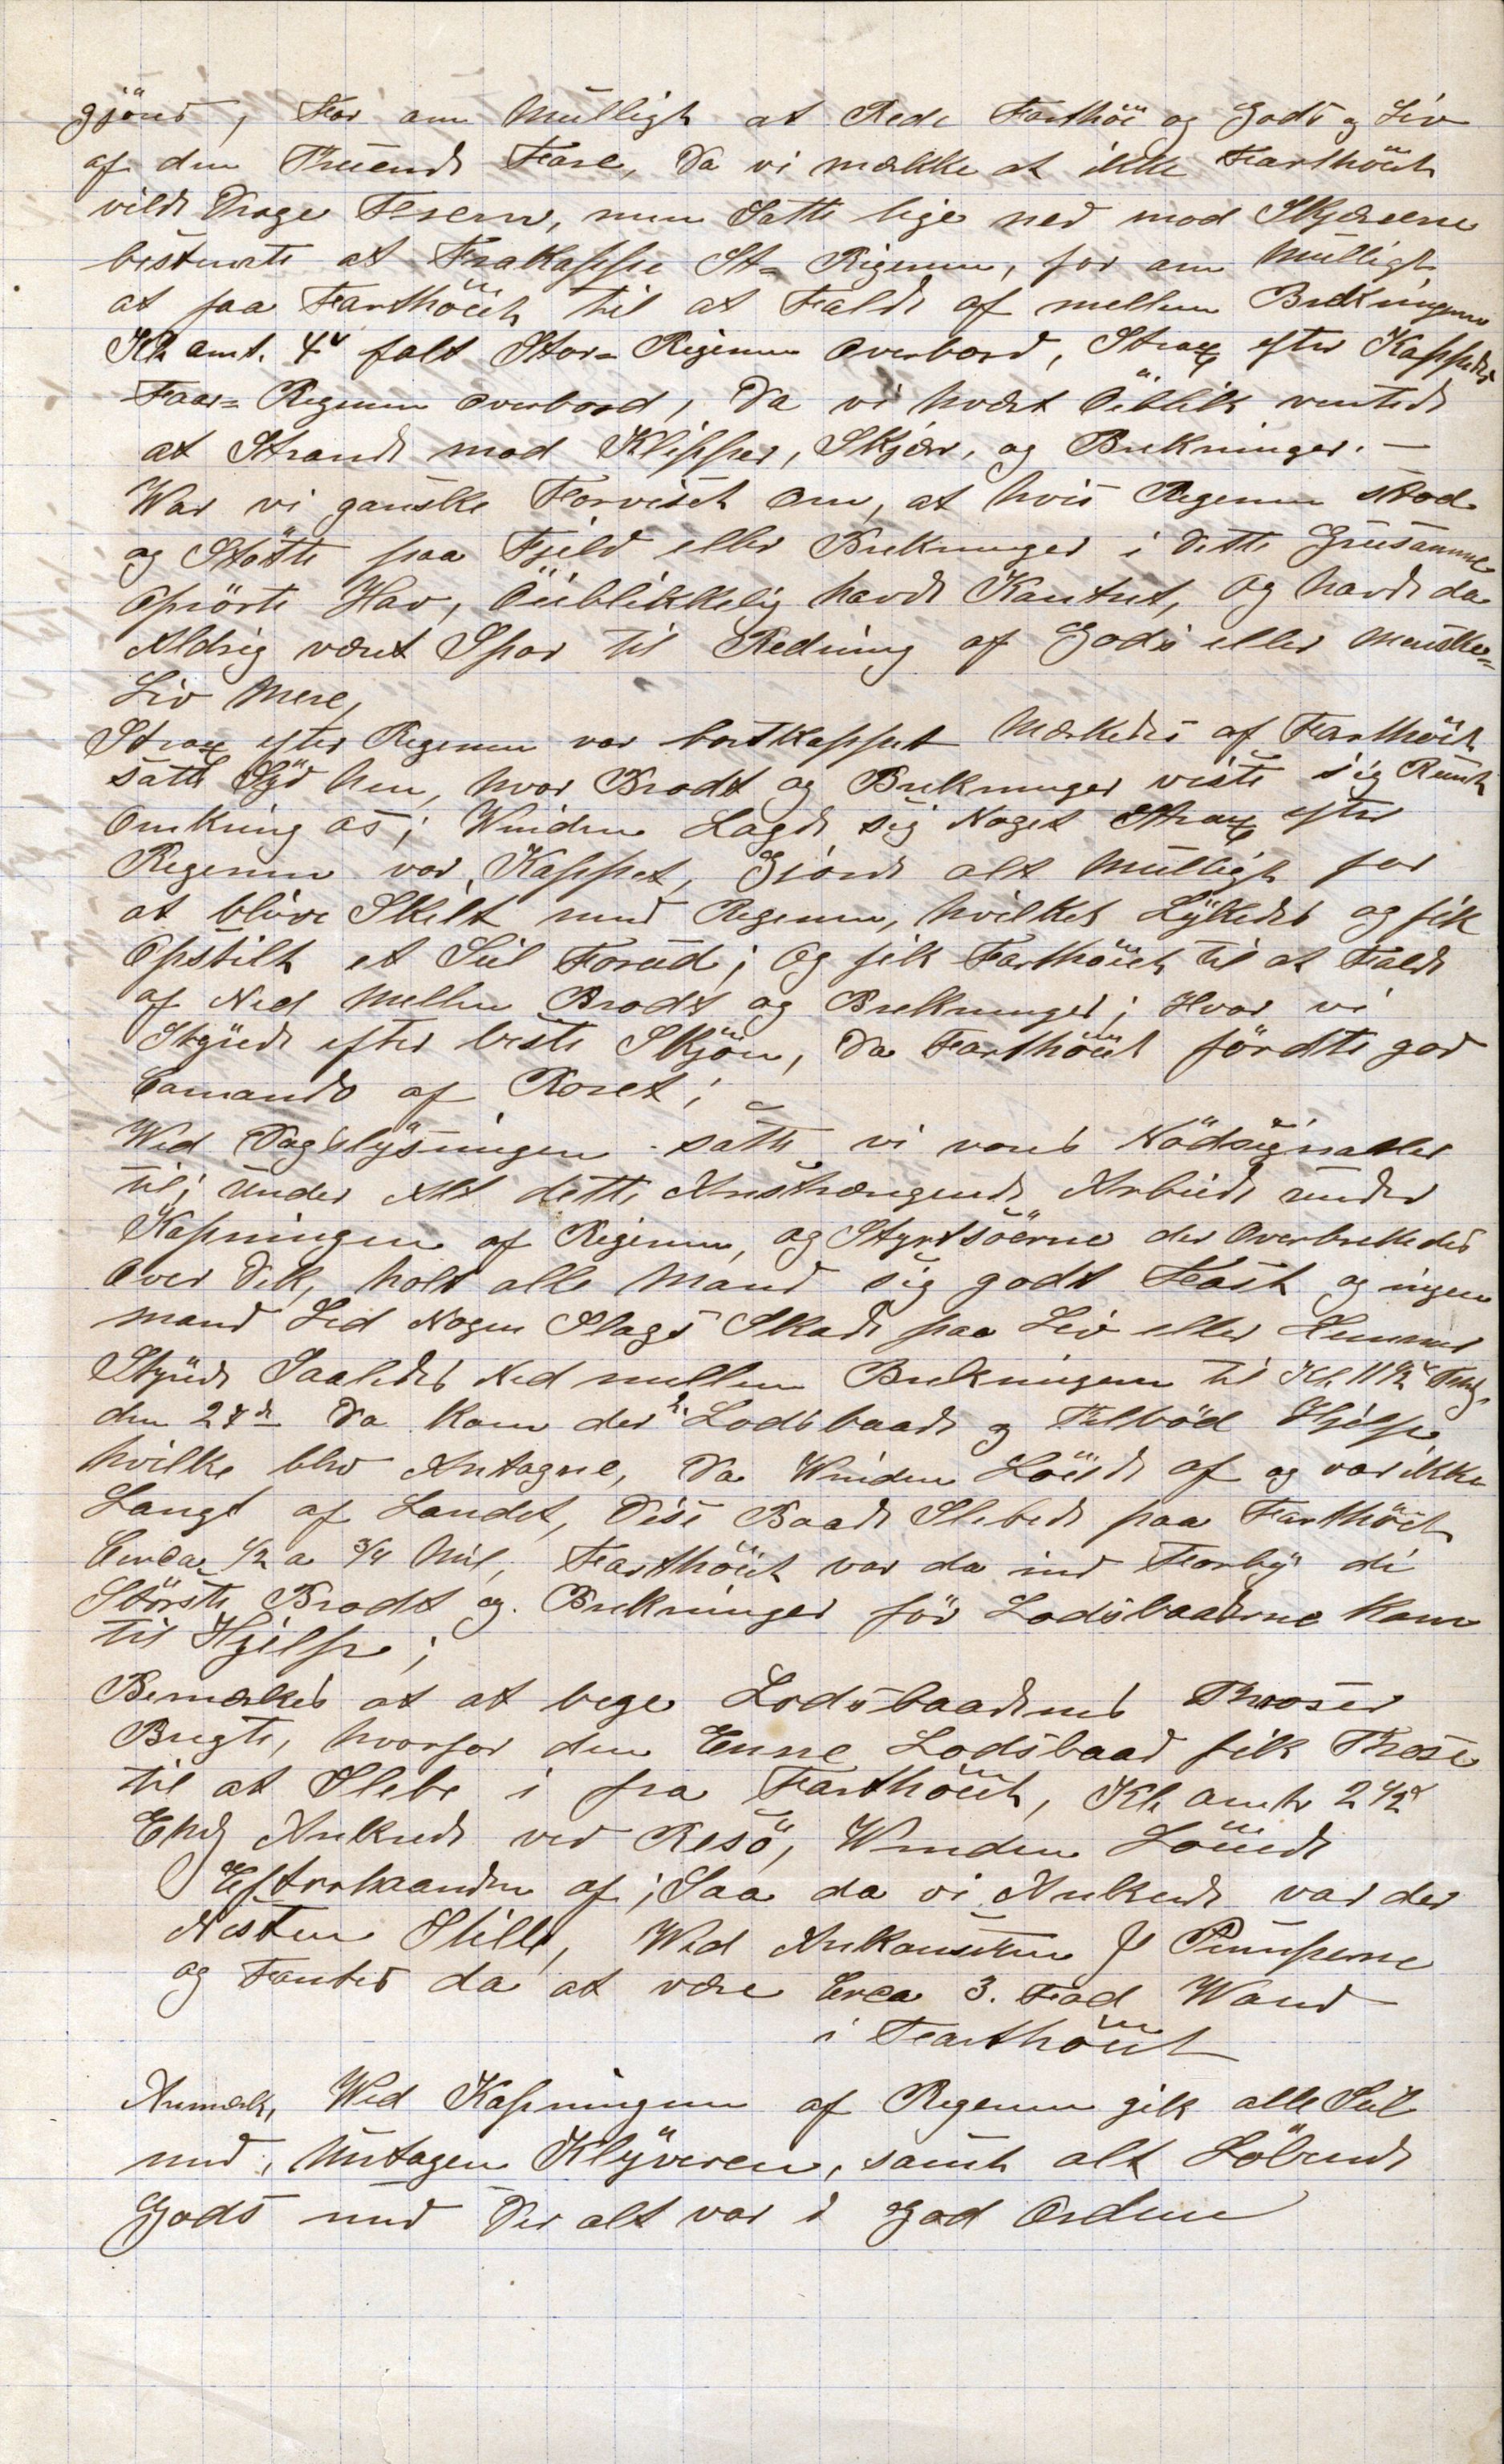 gjöres, For om Mulligt at Rede Farthöi og Gods og Liv
af den Truende Fare, Da vi mærkke at ikke Farthöiet
vilde Drage Fræm, men Satte lige ned mod Skjærene
bestemte at Frakappe St= Rigenen, for om Mulligt
at faa Farthöiet til at Falde af mellem Brekningerne
Kl. omt. 4 falt Stor= Rigenen Overbord, Strax efter Kappedes
Faar= Regenen Overbord, Da vi hvært Öiblik ventede
at Strande mod Klipper, Skjær, og Brekninger. —
War vi ganske Forviset Om, at hvis Regenen stod
og Stötte paa Fjeld eller Brekninger i dette Grusamme
Oprörte Hav, Öiiblikkelig havde Kantret, og havde da
Aldrig været Spor til Redning af Gods eller Menske=
Liv Mere,
Strax efter Regenen var bortkappet Mærkedes af Farthöiet
satte Syd hen, hvor Brodt og Brekninger viste sig Rundt
Omkring os; Winden Lagde sig Noget Strax efter
Regenen var Kappet, Gjorde alt Mulligt for
at blive Skilt med Regenen, hvilket Lykedes og fik
Opstilt et Seil Forud; og fik Farthöiet til at Falde
af Ned Mellem Brodt og Brekninger; Hvor vi
Styrede efter beste Skjön, Da Farthöiet fördte god
Comando af Roret;
Wed Dagslysningen satte vi vores Nödsignaler
til; Under Alt dette Anstrængende Arbeide under
Kapningen af Rigenen, og Styrtsöerne der Overbrekkedes
Over Dek, holt alle Mand sig godt Fast og ingen
mand Led Nogen Slags Skade paa Liv eller Lemmer
Styrede Saaledes Ned mellem Brekningerne til Kl. 11½
den 24de Da kom der 2. Lodsbaade og Tilböd Hjelp
hvilke blev Antagne, Da Winden Löiede af og var ikke
Langt af Landet, Disse Baade Slebede paa Farthöiet
Cirka ½ a ¾ Mil, Farthöiet var da ind Forby di
Störste Brodt og Brekninger för Lodsbaaderne Kom
til Hjelp;
Bemærkes at at bege Lodsbaadenes Trosser
Bregte, hvorfor den Enne Lodsbaad fik Trose
til at Slebe i fra Farthöiet, Kl. omtr 2½
Ehd Ankrede ved Resö, Winden Löiede
Efterhaanden af; Saa da vi Ankrede var der
Nesten Stille, Wed Ankomsten Pumperne
og Fantes da at være Circa 3. Fod Wand
i Farthöiet
Anmærk, Wed Kapningen af Regenen gik alle Seil
med, Untagen Klyveren, samt alt Löbende
Gods med Der alt var i God Orden